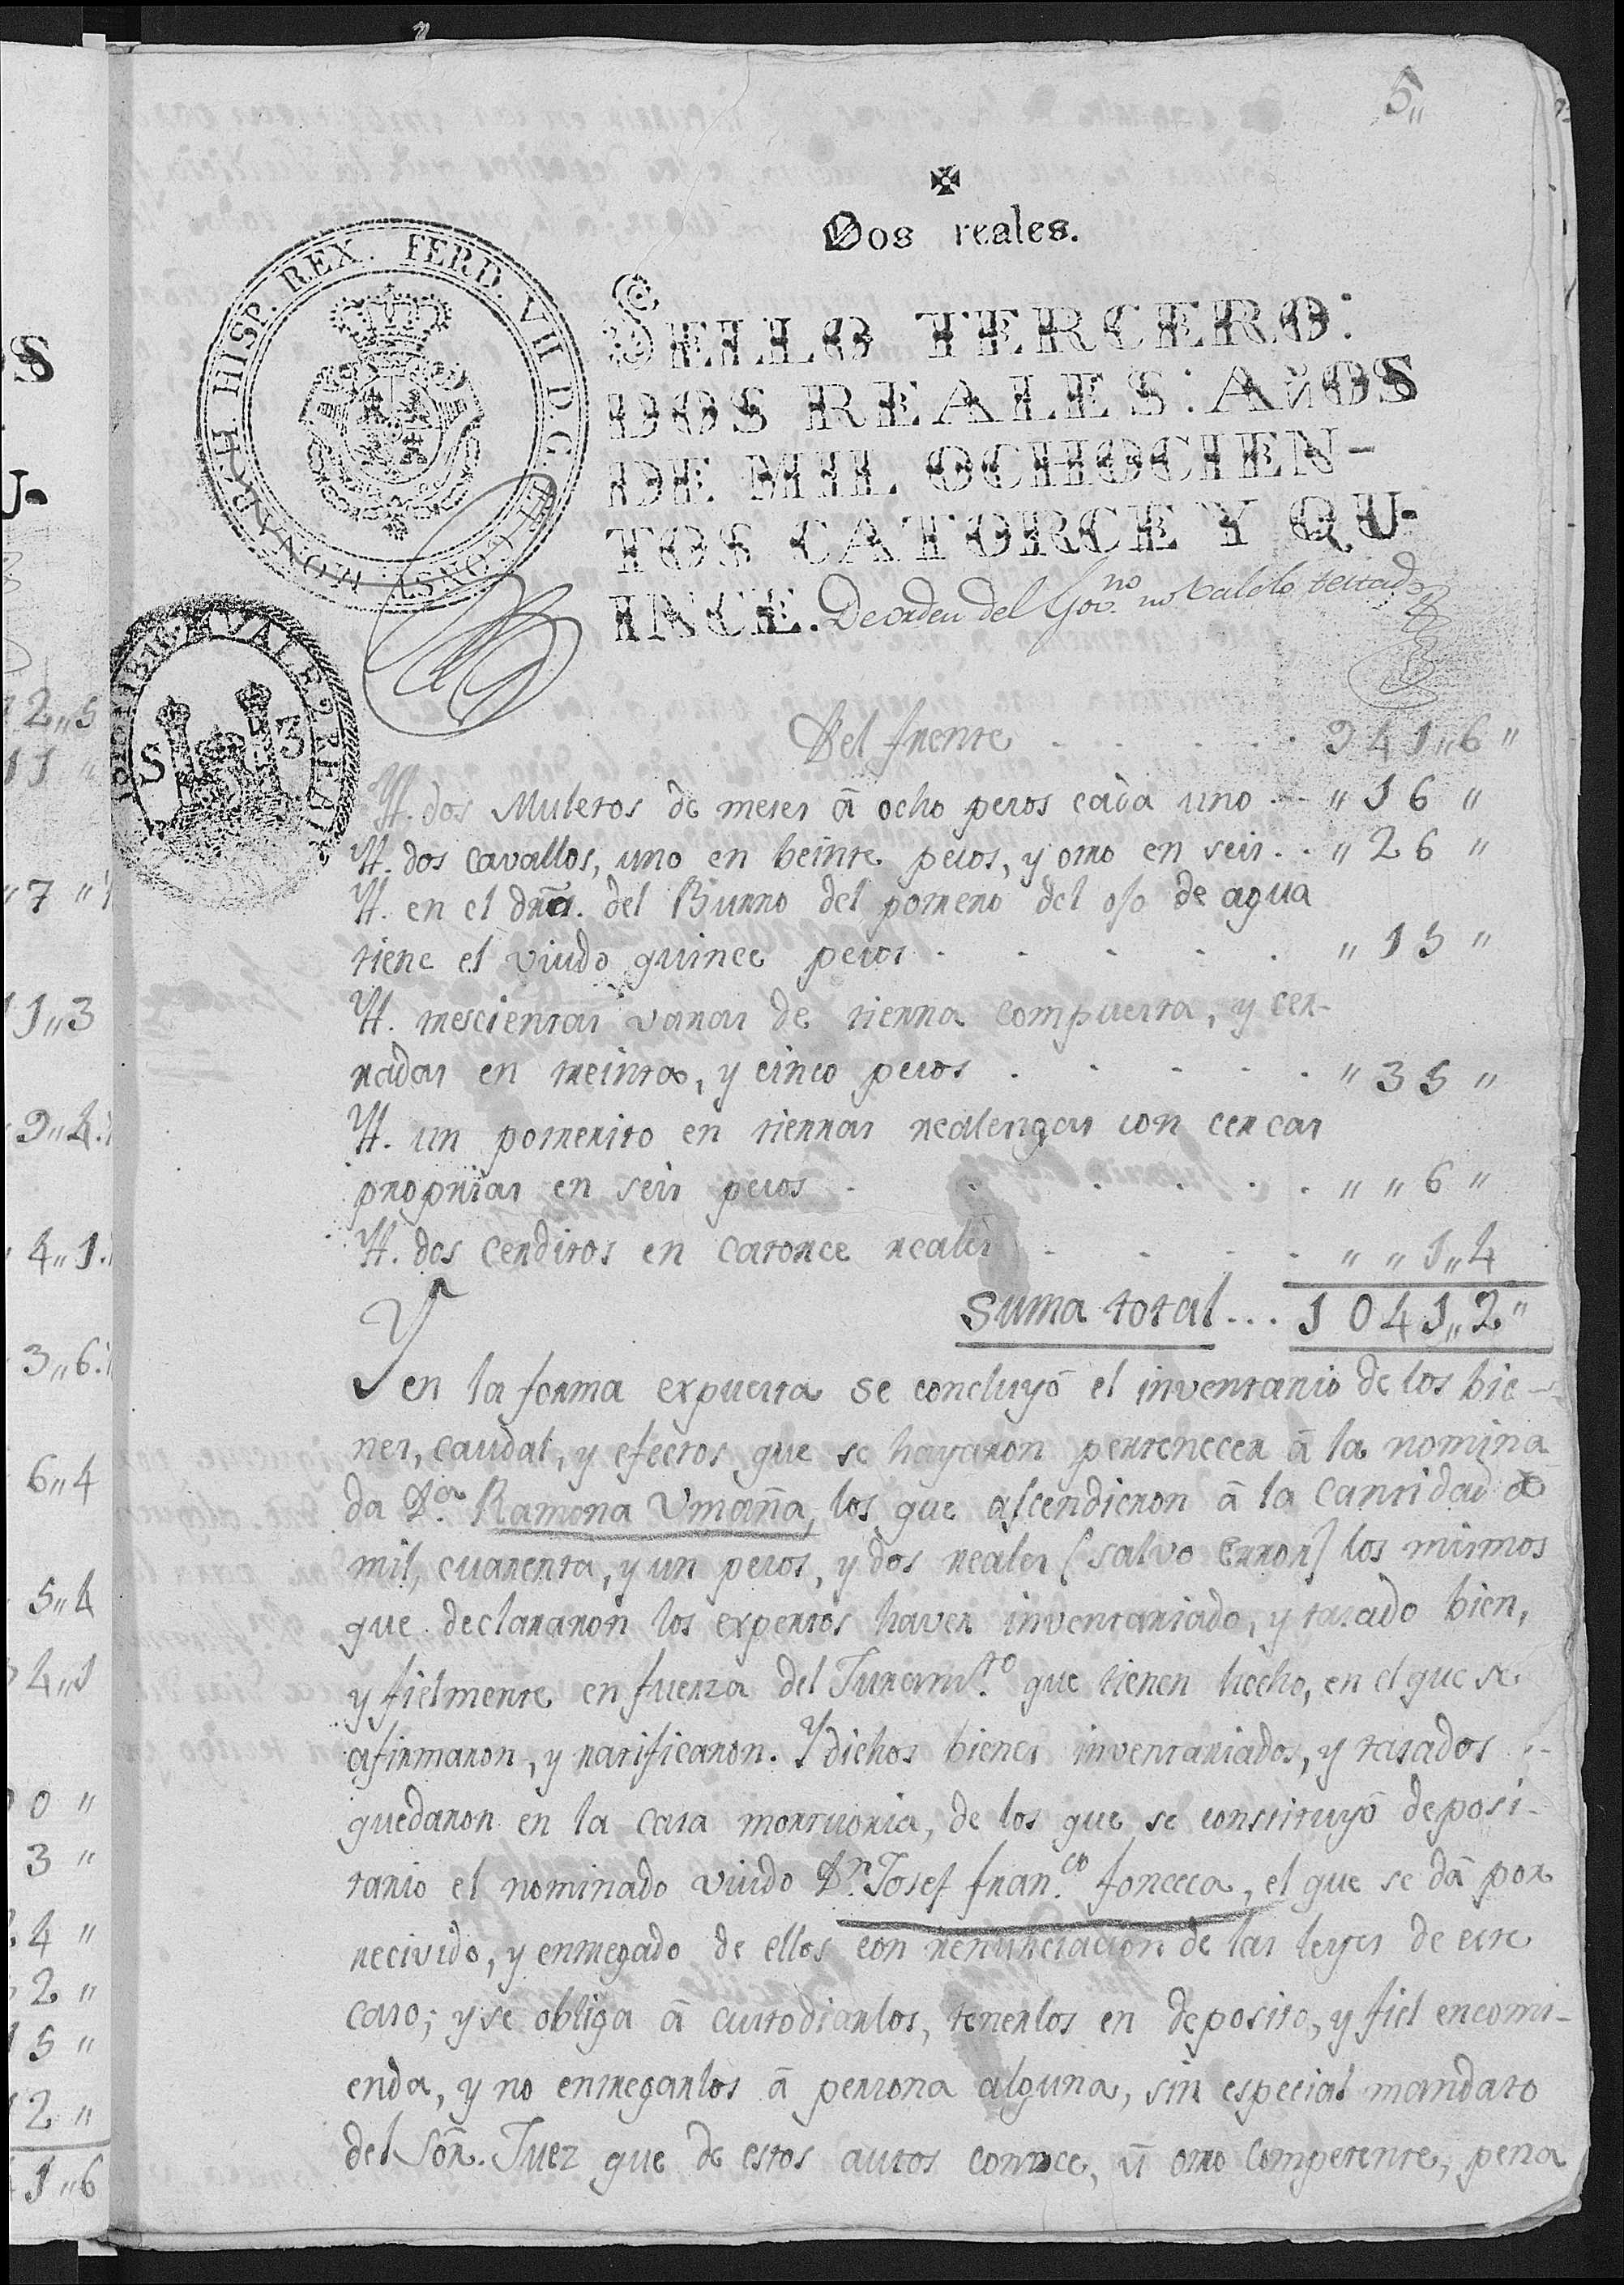 5,,
Dos reales.
HISP. REX. FERD. VII D.G. ET CONST. MONARCH.
SELLO TERCERO:
DOS REALES: AÑOS
DE MIL OCHOCIEN-
TOS CATORCE Y QU-
INCE. De orden del Gov.no no vale lo testado
S 3
Del frente . . . . . . 941,,6 ,,
Yt. dos Muletos de meses â ocho pesos cada uno . . ,, 16 ,,
Yt. dos cavallos, uno en beinte pesos, y otro en seis . . ,, 26 ,,
Yt. en el dro. del Burro del potrero del ojo de agua
tiene el viudo quince pesos . . . . . ,, 15 ,,
Yt. trescientas varas de tierra compuesta, y cer-
radas en treinta, y cinco pesos . . . . . ,, 35 ,,
Yt. un potrerito en tierras realengas con cercas
proprias en seis pesos . . . . . ,, ,, 6 ,,
Yt. dos cerditos en catorce reales . . . . ,, ,, 1,,4
Suma total . . . 1041,,2 ,,
Y en la forma expuesta se concluyô el inventario de los bie-
nes, caudal, y efectos que se hayaron pertenecer â la nomina
da D.a Ramona Vmaña, los que ascendieron â la cantidad de
mil, cuarenta, y un pesos, y dos reales (salvo error) los mismos
que declararon los expertos haver inventariado, y tasado bien,
y fielmente en fuerza del Juram.to que tienen hecho, en el que se
afirmaron, y ratificaron. Y dichos bienes inventariados, y tasados
quedaron en la casa mortuoria, de los que se constituyô deposi-
tario el nominado viudo D.n Josef Fran.co Fonceca, el que se dâ por
recivido, y entregado de ellos con renunciacion de las leyes de este
caso; y se obliga â custodiarlos, tenerlos en deposito, y fiel encomi-
enda, y no entregarlos â persona alguna, sin especial mandato
del Sor. Juez que de estos autos conoce, û otro competente, pena